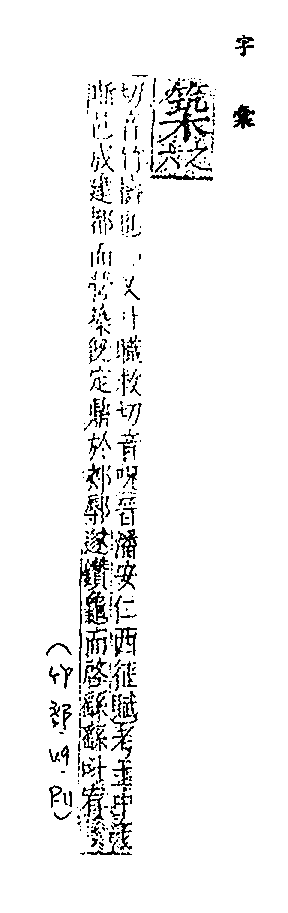 字彙
築之六
切音竹擣也又叶職救切音呪晉潘安仁西征賦考土中
斯邑成建都而營築既定鼎於郟鄏遂鑽龜而啓繇繇叶宥
竹部